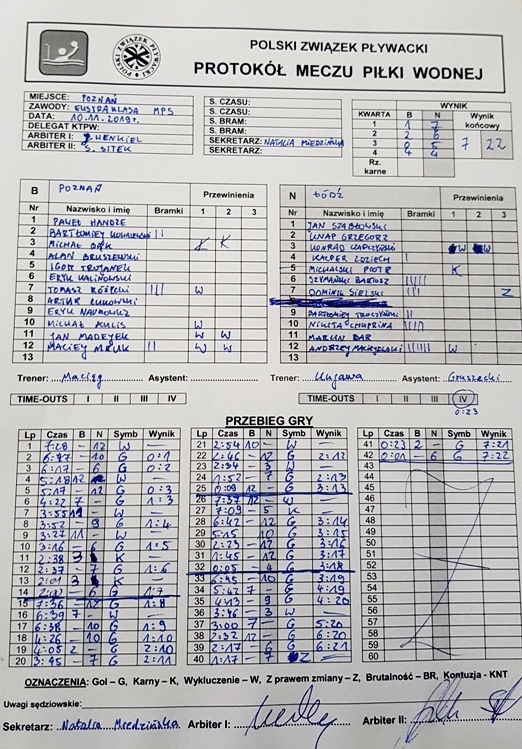 POLSKI ZWIĄZEK PŁYWACKI
POLSKI ZWIĄZEK PŁYWACKI
PROTOKÓŁ MECZU PIŁKI WODNEJ
MIEJSCE: POZNAŃ
ZAWODY: EKSTRAKLASA MPS
DATA: 10.11.2019r.
DELEGAT KTPW:
ARBITER I: HENKIEL
ARBITER II: S. SITEK
S. CZASU:
S. CZASU:
S. BRAM:
S. BRAM:
SEKRETARZ: NATALIA MIEDZIŃSKA
SEKRETARZ:
WYNIK
KWARTA B N Wynik końcowy
1 1 7
2 2 6
3 0 5
4 4 4
7 22
Rz. karne
B POZNAŃ
Przewinienia
Nr Nazwisko i imię Bramki 1 2 3
1 PAWEŁ HANDZE
2 BARTŁOMIEJ II
3 MICHAŁ BĄK K K
4 ALAN BRUSZEWSKI
5 IGOR TROJANEK
6 ERYK KALINOWSKI
7 TOMASZ III W
8 ARTUR
9 ERYK
10 MICHAŁ KULIS W
11 JAN MADEYEK W W
12 MACIEJ MRUK II W W
13
N ŁÓDŹ
Przewinienia
Nr Nazwisko i imię Bramki 1 2 3
1 JAN SZABŁOWSKI
2 KNAP GRZEGORZ
3 KONRAD W W
4 KACPER I
5 MICHALSKI PIOTR K
6 SZYMAŃSKI BARTOSZ
7 DOMINIK SIELSKI Z
9 BARTŁOMIEJ
10 NIKITA CHUPRINA
11 MARCIN BAR
12 ANDRZEJ W
13
Trener: Macieg Asystent:
Trener: Kujawa Asystent: Gruszecki
TIME-OUTS I II III IV
TIME-OUTS I II III IV
0:23
PRZEBIEG GRY
Lp Czas B N Symb Wynik
1 7:28 - 12 W —
2 6:27 - 10 G 0:1
3 6:17 - 6 G 0:2
4 5:18 12 W —
5 5:17 - 12 G 0:3
6 4:22 7 - G 1:3
7 3:55 11 - W —
8 3:52 - 9 G 1:4
9 3:27 11 - W —
10 3:16 - 6 G 1:5
11 2:38 3 K —
12 2:37 - 7 G 1:6
13 2:01 3 K —
14 - 6 G 1:7
15 7:36 - 12 G 1:8
16 6:39 7 - W —
17 6:38 - 10 G 1:9
18 4:26 - 10 G 1:10
19 4:05 2 - G 2:10
20 3:45 - 7 G 2:11
21 2:54 10 - W —
22 2:46 - 12 G 2:12
23 2:34 - 3 W —
24 1:52 - 7 G 2:13
25 0:09 - 12 G 3:13
26 7:37 12 - W —
27 7:09 - 5 K —
28 6:42 - 12 G 3:14
29 5:15 - 10 G 3:15
30 2:23 - 12 G 3:16
31 1:45 - 12 G 3:17
32 0:05 - 4 G 3:18
33 6:45 - 10 G 3:19
34 5:42 7 - G 4:19
35 4:13 - 9 G 4:20
36 3:46 - 3 W —
37 3:00 7 - G 5:20
38 2:32 12 - G 6:20
39 2:17 - 12 G 6:21
40 1:17 - 7 Z —
41 0:23 2 - G 7:21
42 0:01 - 6 G 7:22
43
44
45
46
47
48
49
50
51
52
53
54
55
56
57
58
59
60
OZNACZENIA: Gol – G, Karny – K, Wykluczenie – W, Z prawem zmiany – Z, Brutalność – BR, Kontuzja - KNT
Uwagi sędziowskie:
Sekretarz: Natalia Miedzińska Arbiter I: Arbiter II: